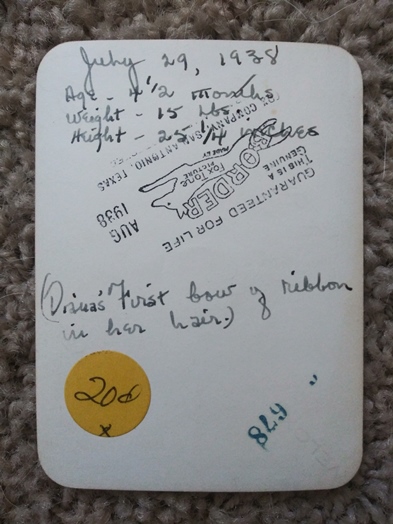 July 29, 1938
Age - 4 1/2 months
Weight - 15 lbs.
Height - 25 1/4 inches
FOX COMPANY, SAN ANTONIO, TEXAS
MADE BY
FOX TONE
PICTURE
BORDER
THIS IS A
GENUINE
GUARANTEED FOR LIFE
AUG
1938
(Diana's First bow of ribbon
in her hair.)
20¢
x
678 "